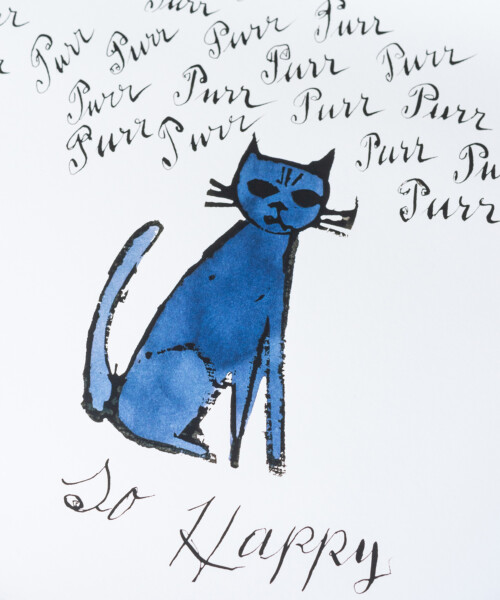 Purr
Purr Purr Purr Purr
Purr Purr Purr Purr
Purr Purr Purr Purr
Purr Pu
Purr
So Happy